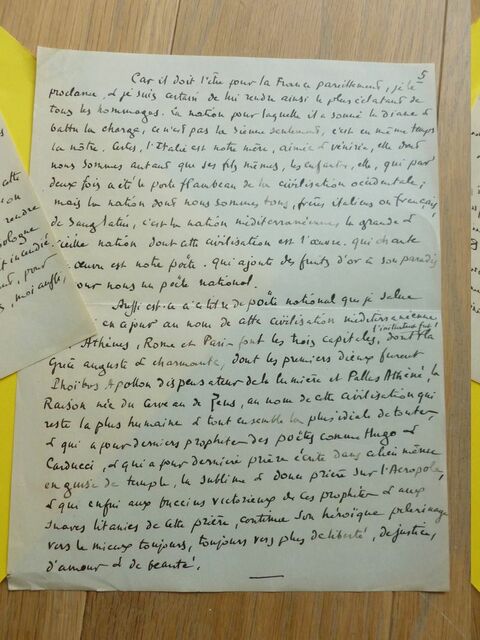 5
Car il doit l'être pour la France pareillement, je le
proclame, & je suis certain de lui rendre ainsi le plus éclatant de
tous les hommages. La nation pour laquelle il a sonné la Diane &
battu la charge, ce n'est pas la sienne seulement, c'est en même temps
la nôtre. Certes, l'Italie est notre mère, aimée & vénérée, elle dont
nous sommes autant que ses fils mêmes, les enfants, elle, qui par
deux fois a été le porte flambeau de la civilisation occidentale ;
mais la nation dont nous sommes tous, frères italiens ou français,
de sang latin, c'est la nation méditerranéenne, la grande &
vieille nation dont cette civilisation est l'œuvre. qui chante
œuvre est notre poète. qui ajoute des fruits d'or à son paradis
pour nous un poète national.
Aussi est-ce à ce titre de poète national que je salue
en ce jour au nom de cette civilisation méditerranéenne
Athènes, Rome et Paris sont les trois capitales, dont la
Grèce auguste & charmante, dont les premiers dieux furent
Phoibos Apollon dispensateur de la lumière et Pallas Athéné, la
Raison née du cerveau de Zeus, au nom de cette civilisation qui
reste la plus humaine & tout ensemble la plus idéale de toutes,
& qui a pour derniers prophètes des poètes comme Hugo &
Carducci, & qui a pour dernière prière écrite dans
en guise de temple, la sublime & douce prière sur l'Acropole,
& qui enfin aux buccins victorieux de ces prophètes & aux
suaves litanies de cette prière, continue son héroïque pèlerinage
vers le mieux toujours, toujours vers plus de liberté, de justice,
d'amour & de beauté.
cette
rendre
pologne
incendie,
pour
, moi aussi,